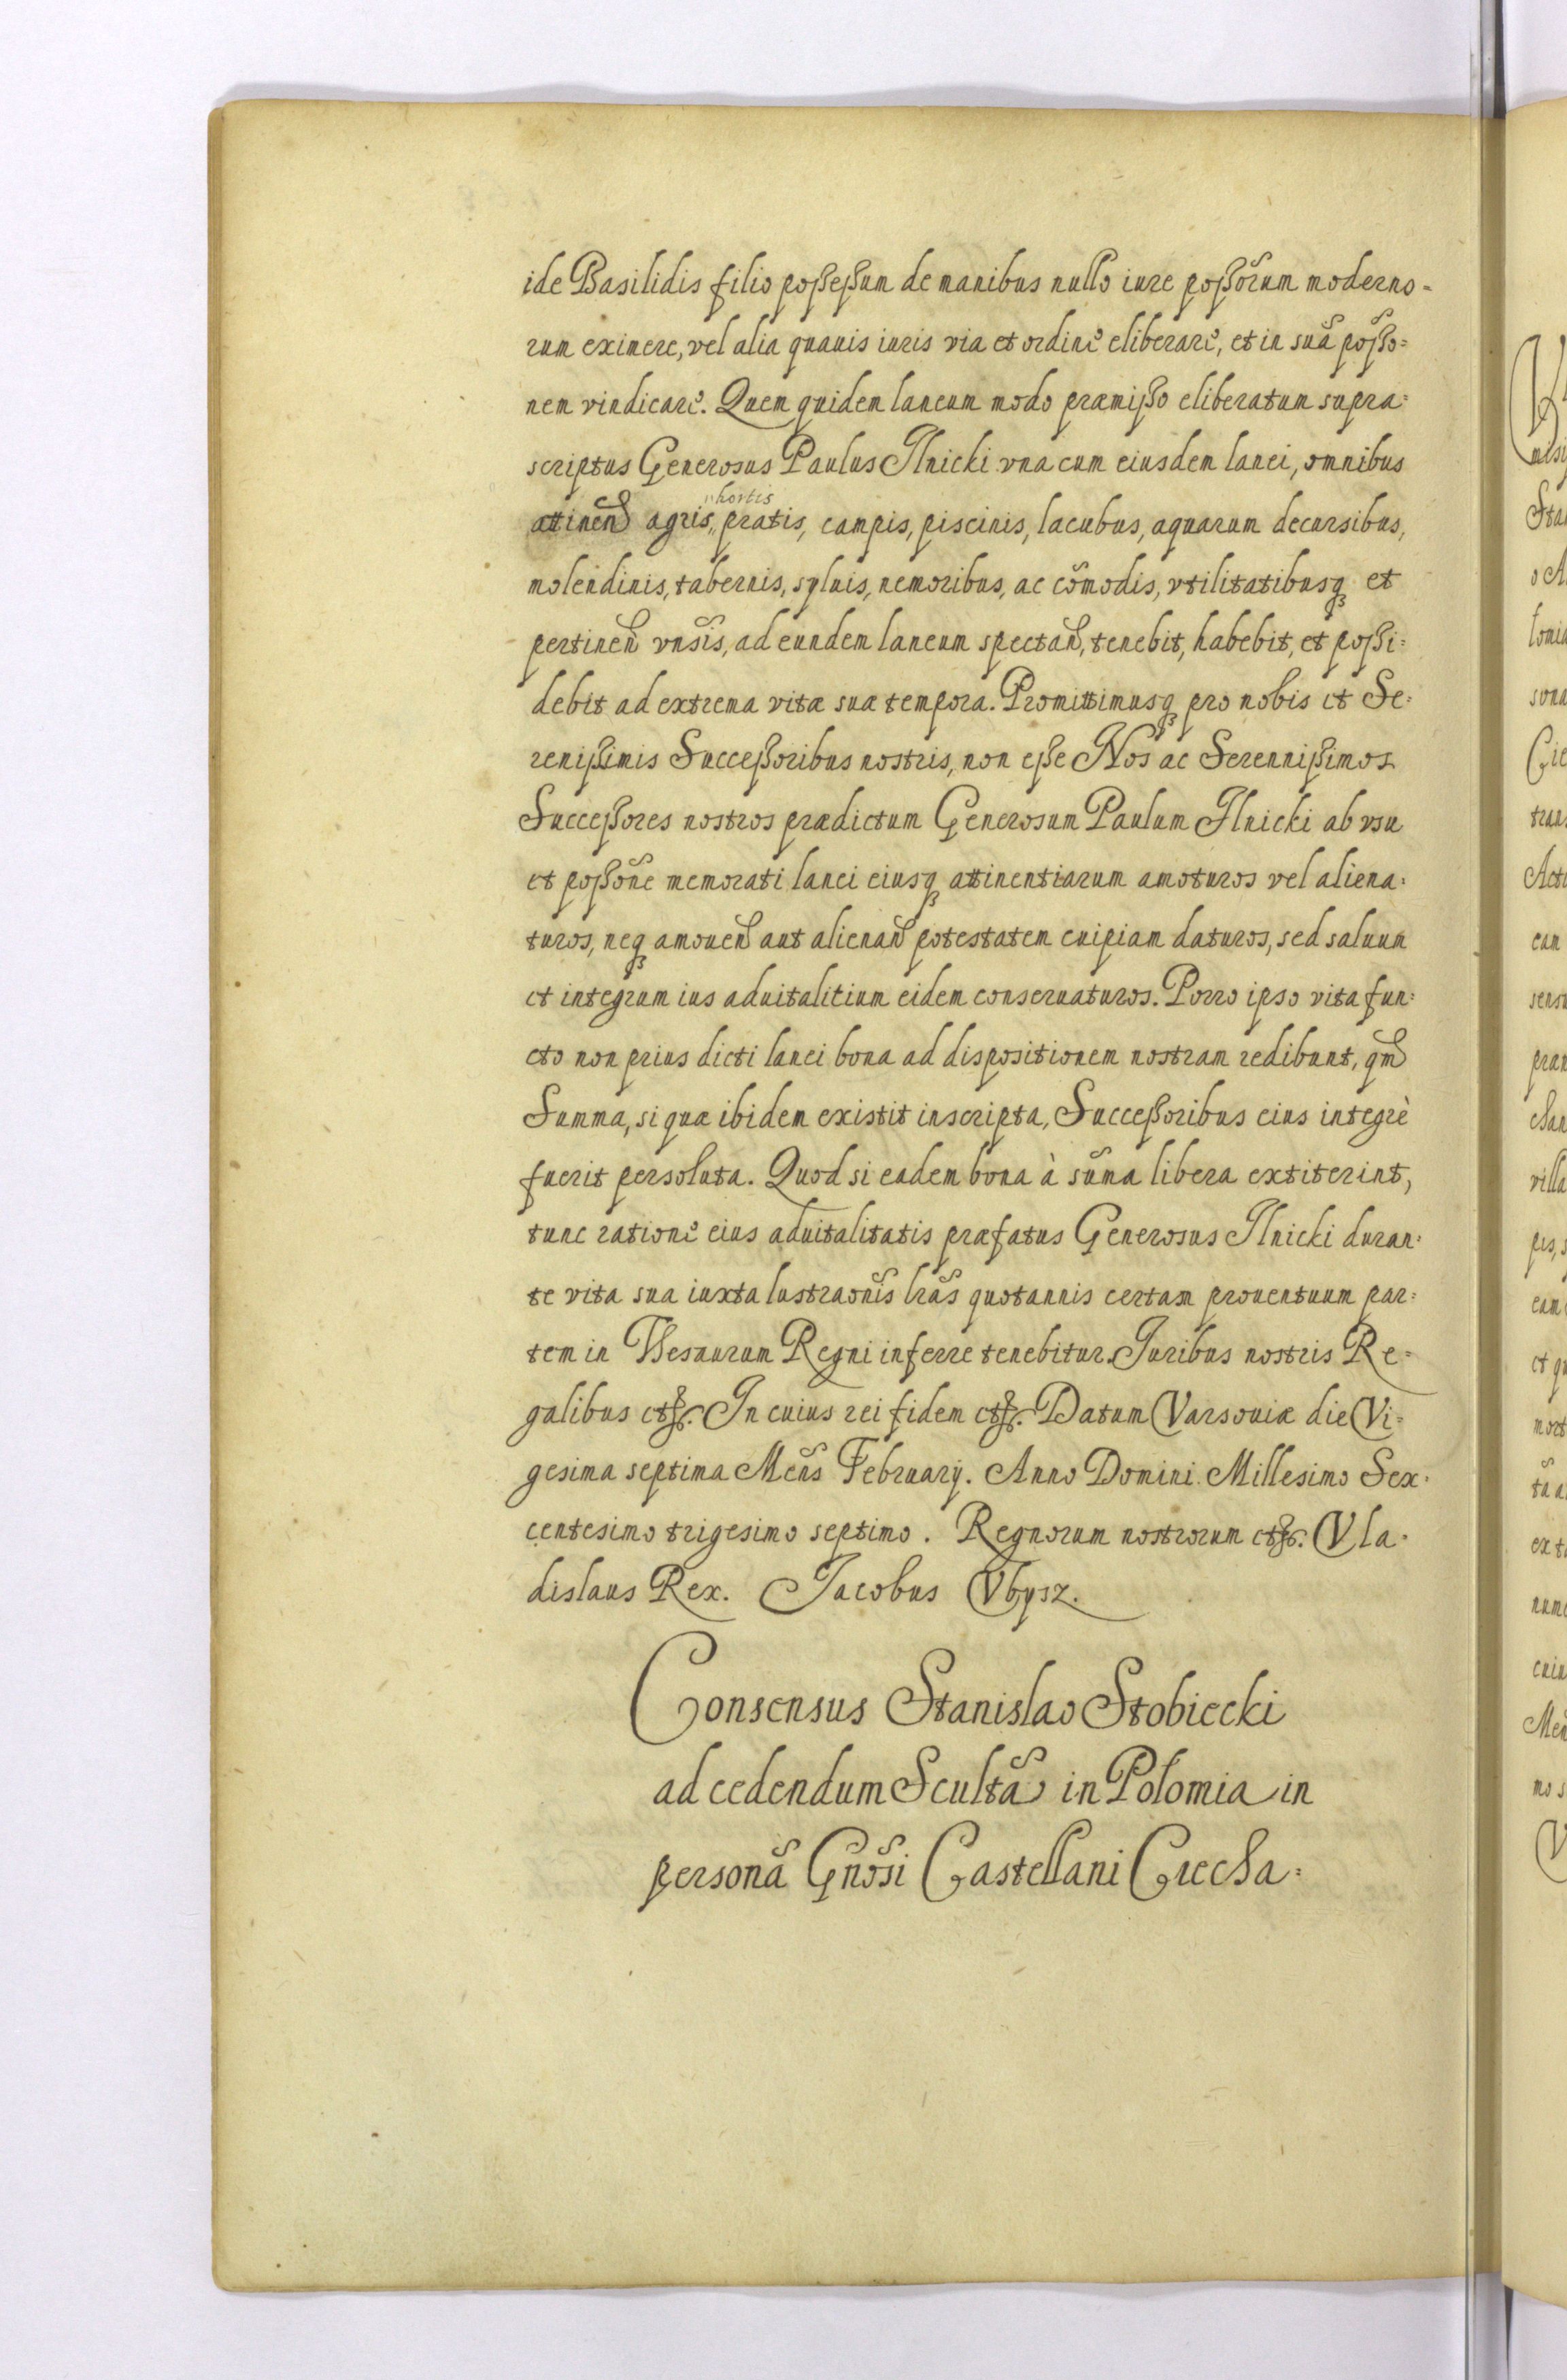 ide Basilidis filio possessum de manibus nullo iure possõrum moderno=
rum eximere, vel alia quauis iuris via et ordine eliberare, et in suã posso=
nem vindicare. Quem quidem laneum modo præmisso eliberatum supra=
scriptus Generosus Paulus Ilnicki vna cum eiusdem lanei, omnibus
hortis
attinen̄ agris,, pratis, campis, piscinis, lacubus, aquarum decursibus,
molendinis, tabernis, syluis, nemoribus, ac cõmodis, vtilitatibusq3 et
pertinen̄ vnsĩs, ad eundem laneum spectan̄, tenebit, habebit, et possi=
debit ad extrema vitæ suæ tempora. Promittimusq3 pro nobis et Se=
renissimis Successoribus nostris, non esse Nos ac Serennissimos
Successores nostros prædictum Generosum Paulum Ilnicki ab vsu
et possõne memorati lanei eiusq3 attinentiarum amoturos vel aliena=
turos, neq3 amouen̄ aut alienan̄ potestatem cuipiam daturos, sed saluum
et integrum ius aduitalitium eidem conseruaturos. Porro ipso vita fun=
cto non prius dicti lanei bona ad dispositionem nostram redibunt, qm̄
Summa, si quæ ibidem existit inscripta, Successoribus eius integrè
fuerit persoluta. Quod si eadem bona à sũma libera extiterint,
tunc ratione eius aduitalitatis præfatus Generosus Ilnicki duran=
te vita sua iuxta lustraõnis lrãs quotannis certam prouentuum par=
tem in Thesaurum Regni inferre tenebitur. Juribus nostris Re=
galibus etc. In cuius rei fidem etc. Datum Varsouiæ die Vi=
gesima septima Mẽns Februarij. Anno Domini Millesimo Sex=
centesimo trigesimo septimo. Regnorum nostrorum etc. Vla=
dislaus Rex. Jacobus Vbysz.
Consensus Stanislao Stobiecki
ad cedendum Scultã in Polomia in
personã Gnõsi Castellani Ciecha=